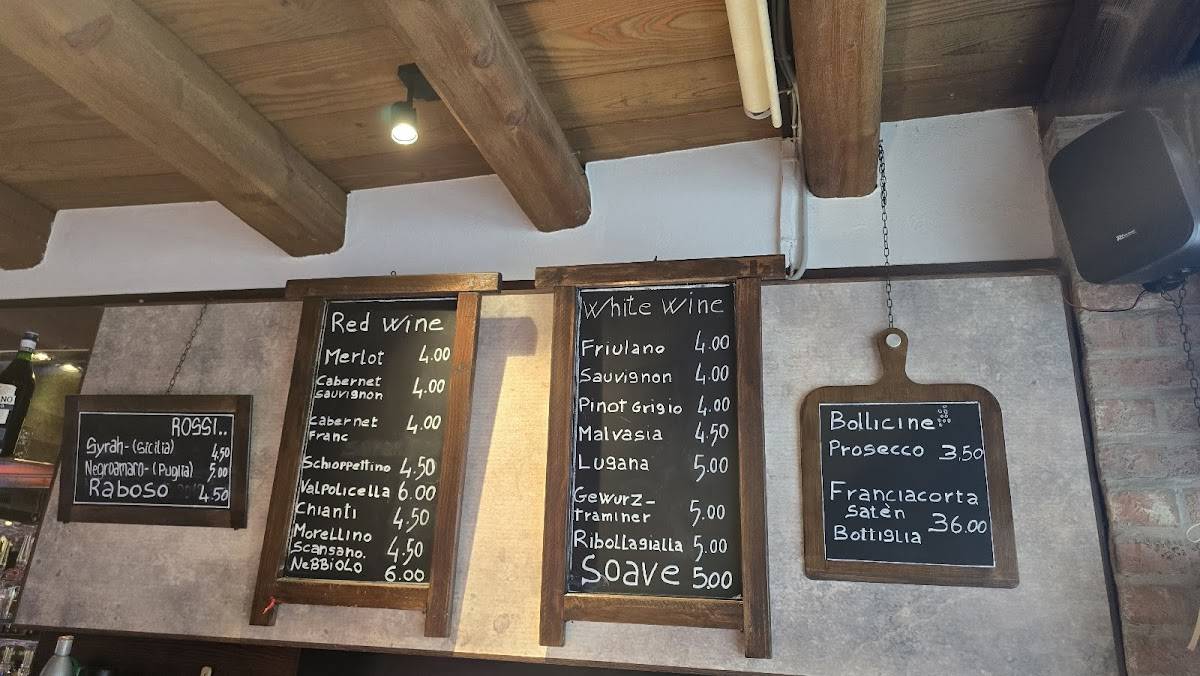 ROSSI..
Syrah-(Sicilia) 4,50
Negroamaro-(Puglia) 5,00
Raboso 4,50
Red wine
Merlot 4.00
Cabernet
sauvignon 4.00
Cabernet
Franc 4.00
Schioppettino 4.50
Valpolicella 6.00
Chianti 4.50
Morellino
Scansano. 4.50
NeBBiOLO 6.00
White wine
Friulano 4.00
Sauvignon 4.00
Pinot Grigio 4.00
Malvasia 4.50
Lugana 5,00
Gewurz-
traminer 5.00
Ribollagialla 5,00
Soave 5,00
Bollicine
Prosecco 3,50
Franciacorta
Satèn
Bottiglia 36.00